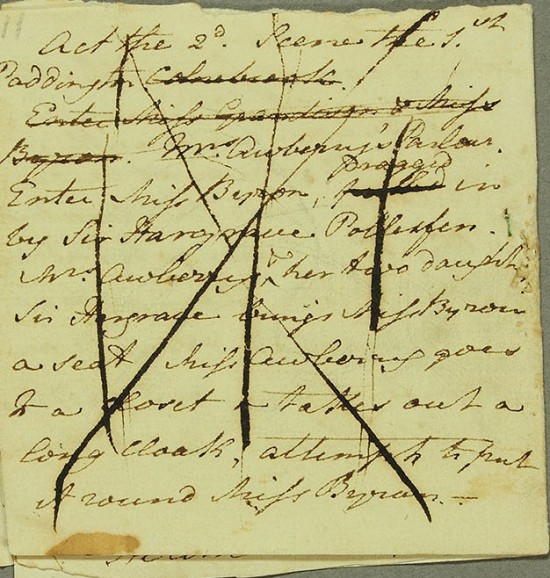 11
Act the 2.d Scene the 1.st
Paddington Colnebrook.
Enter Miss Grandison & Miss
Byron. Mrs. Awberry's Parlour.
dragged
Enter Miss Byron, pulled in
by Sir Hargrave Pollexfen.
Mrs. Awberry & her two daughs.
Sir Hargrave brings Miss Byron
a seat Miss Awberry goes
to a closet & takes out a
long cloak, attempts to put
it round Miss Byron. —